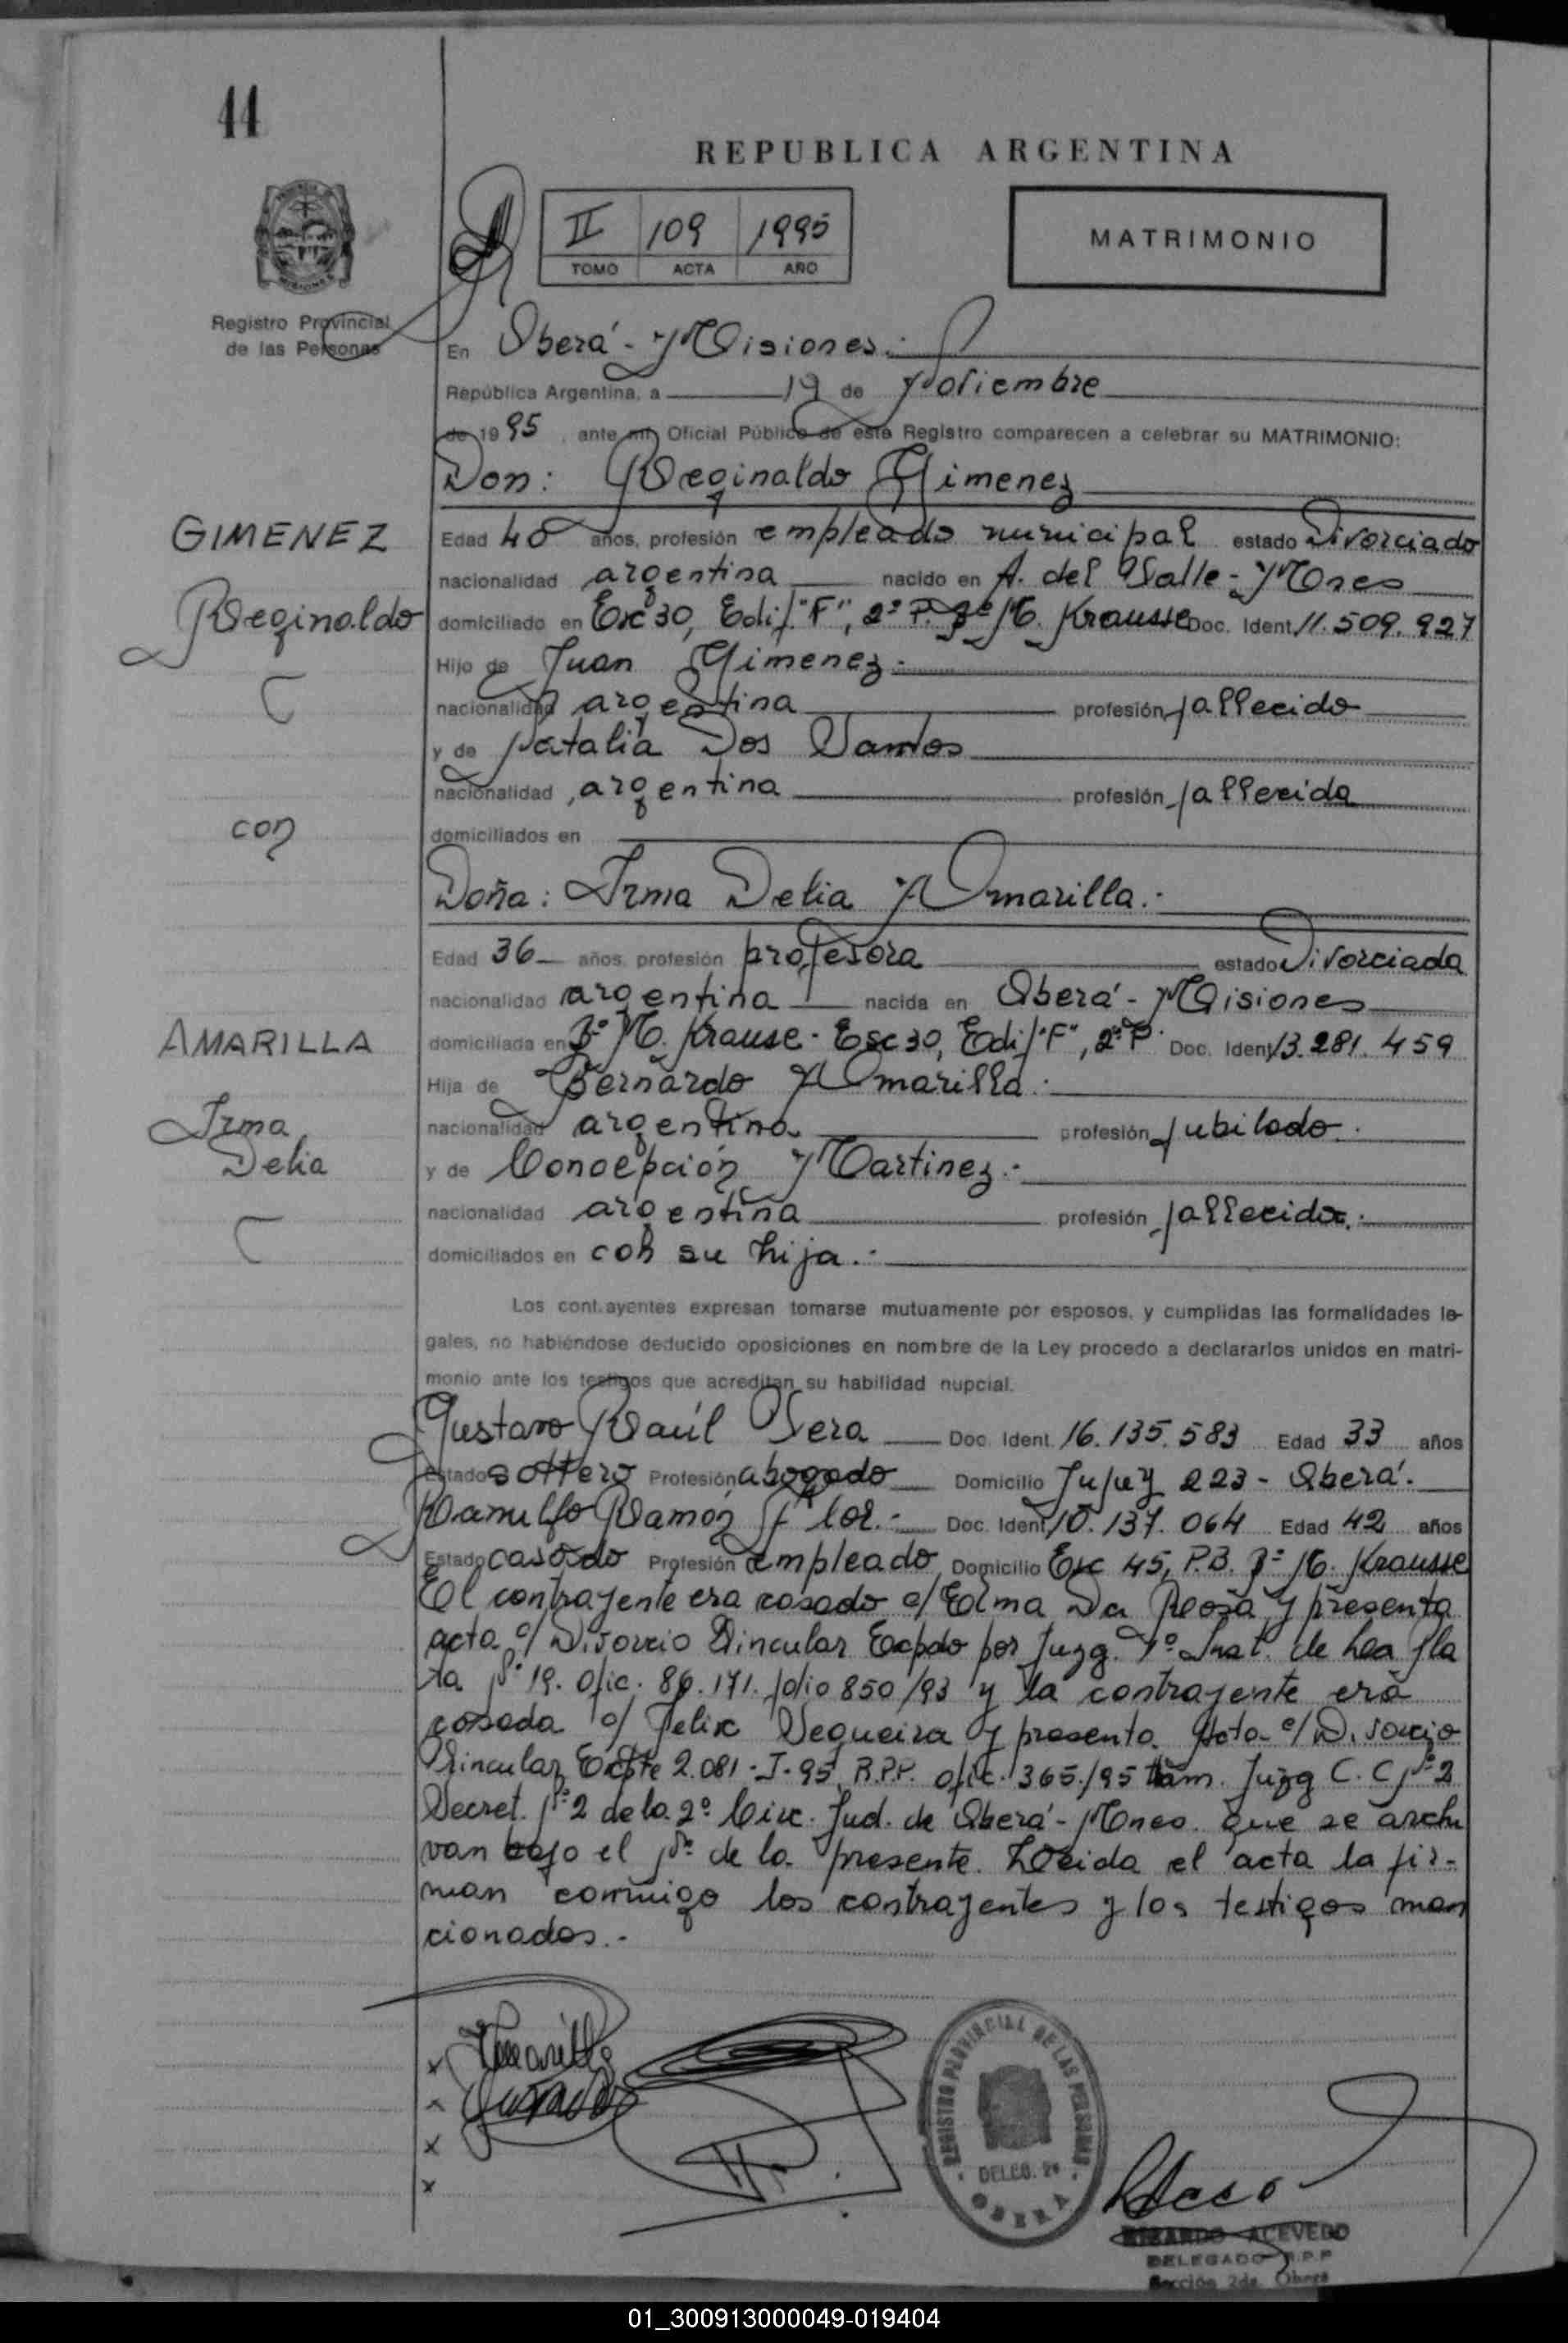 44
REPUBLICA ARGENTINA
II 109 1995
TOMO ACTA AÑO
MATRIMONIO
Registro Provincial
de las Personas
En Oberá - Misiones.-
República Argentina, a 19 de Noviembre
de 1995, ante mí, Oficial Público de este Registro comparecen a celebrar su MATRIMONIO:
Don: Reginaldo Gimenez
GIMENEZ
Reginaldo
Edad 40 años, profesión empleado municipal estado Divorciado
nacionalidad argentina nacido en A. del Valle - Mnes
domiciliado en Esc 30, Edif. "F", 2º P. Bº M. Krausse Doc. Ident. 11.509.927
Hijo de Juan Gimenez.-
nacionalidad argentina profesión fallecido
y de Natalia Dos Santos
nacionalidad argentina profesión fallecida
con
domiciliados en
Doña: Irma Delia Amarilla.-
Edad 36 años, profesión profesora estado Divorciada
nacionalidad argentina nacida en Oberá - Misiones
AMARILLA
Irma
Delia
domiciliada en Bº M. Krause - Esc 30, Edif "F", 2º P. Doc. Ident. 13.281.459
Hija de Bernardo Amarilla.-
nacionalidad argentina profesión jubilado.
y de Concepción Martinez.-
nacionalidad argentina profesión fallecida.-
domiciliados en con su hija.-
Los cont.ayentes expresan tomarse mutuamente por esposos, y cumplidas las formalidades le-
gales, no habiéndose deducido oposiciones en nombre de la Ley procedo a declararlos unidos en matri-
monio ante los testigos que acreditan su habilidad nupcial.
Gustavo Raúl Vera Doc. Ident. 16.135.583 Edad 33 años
Estado soltero Profesión abogado Domicilio Jujuy 223 - Oberá.
Ranulfo Ramón Flor.- Doc. Ident. 10.137.064 Edad 42 años
Estado casado Profesión empleado Domicilio Esc 45, P.B. Bº M. Krausse
El contrayente era casado c/ Elma Da Rosa y presenta
acta c/ Divorcio Vincular Expdo por Juzg. 1º Inst. de La Pla
ta Nº 19. Ofic. 86.171. folio 850/93 y la contrayente era
casada c/ Felix Sequeira y presenta Acta c/ Divorcio
Vincular Expte 2.081-J-95 R.P.P. ofic. 365/95 tam. Juzg C.C Nº 2
Secret. Nº 2 de la 2º Circ. Jud. de Oberá - Mnes. que se archi
van bajo el Nº de la presente. Leida el acta la fir-
man conmigo los contrayentes y los testigos men
cionados.-
x Amarilla
x
x
x
REGISTRO PROVINCIAL DE LAS PERSONAS
DELEG. 2ª
OBERA
RICARDO ACEVEDO
DELEGADO R.P.P
Sección 2da. Oberá
01_300913000049-019404